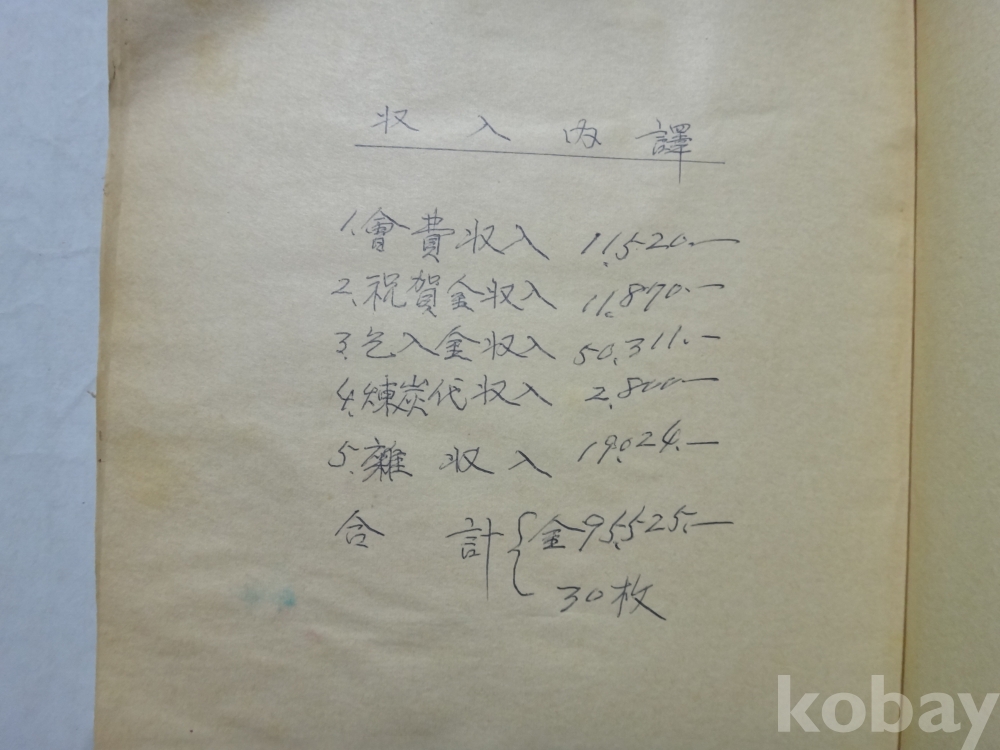 収入內譯
1. 會費収入 11,520.—
2. 祝賀金収入 11,870.—
3. 乞入金収入 50,311.—
4. 煉炭代収入 2,800—
5. 雜収入 19,024.—
合計 { 金95,525.—
30枚
kobay